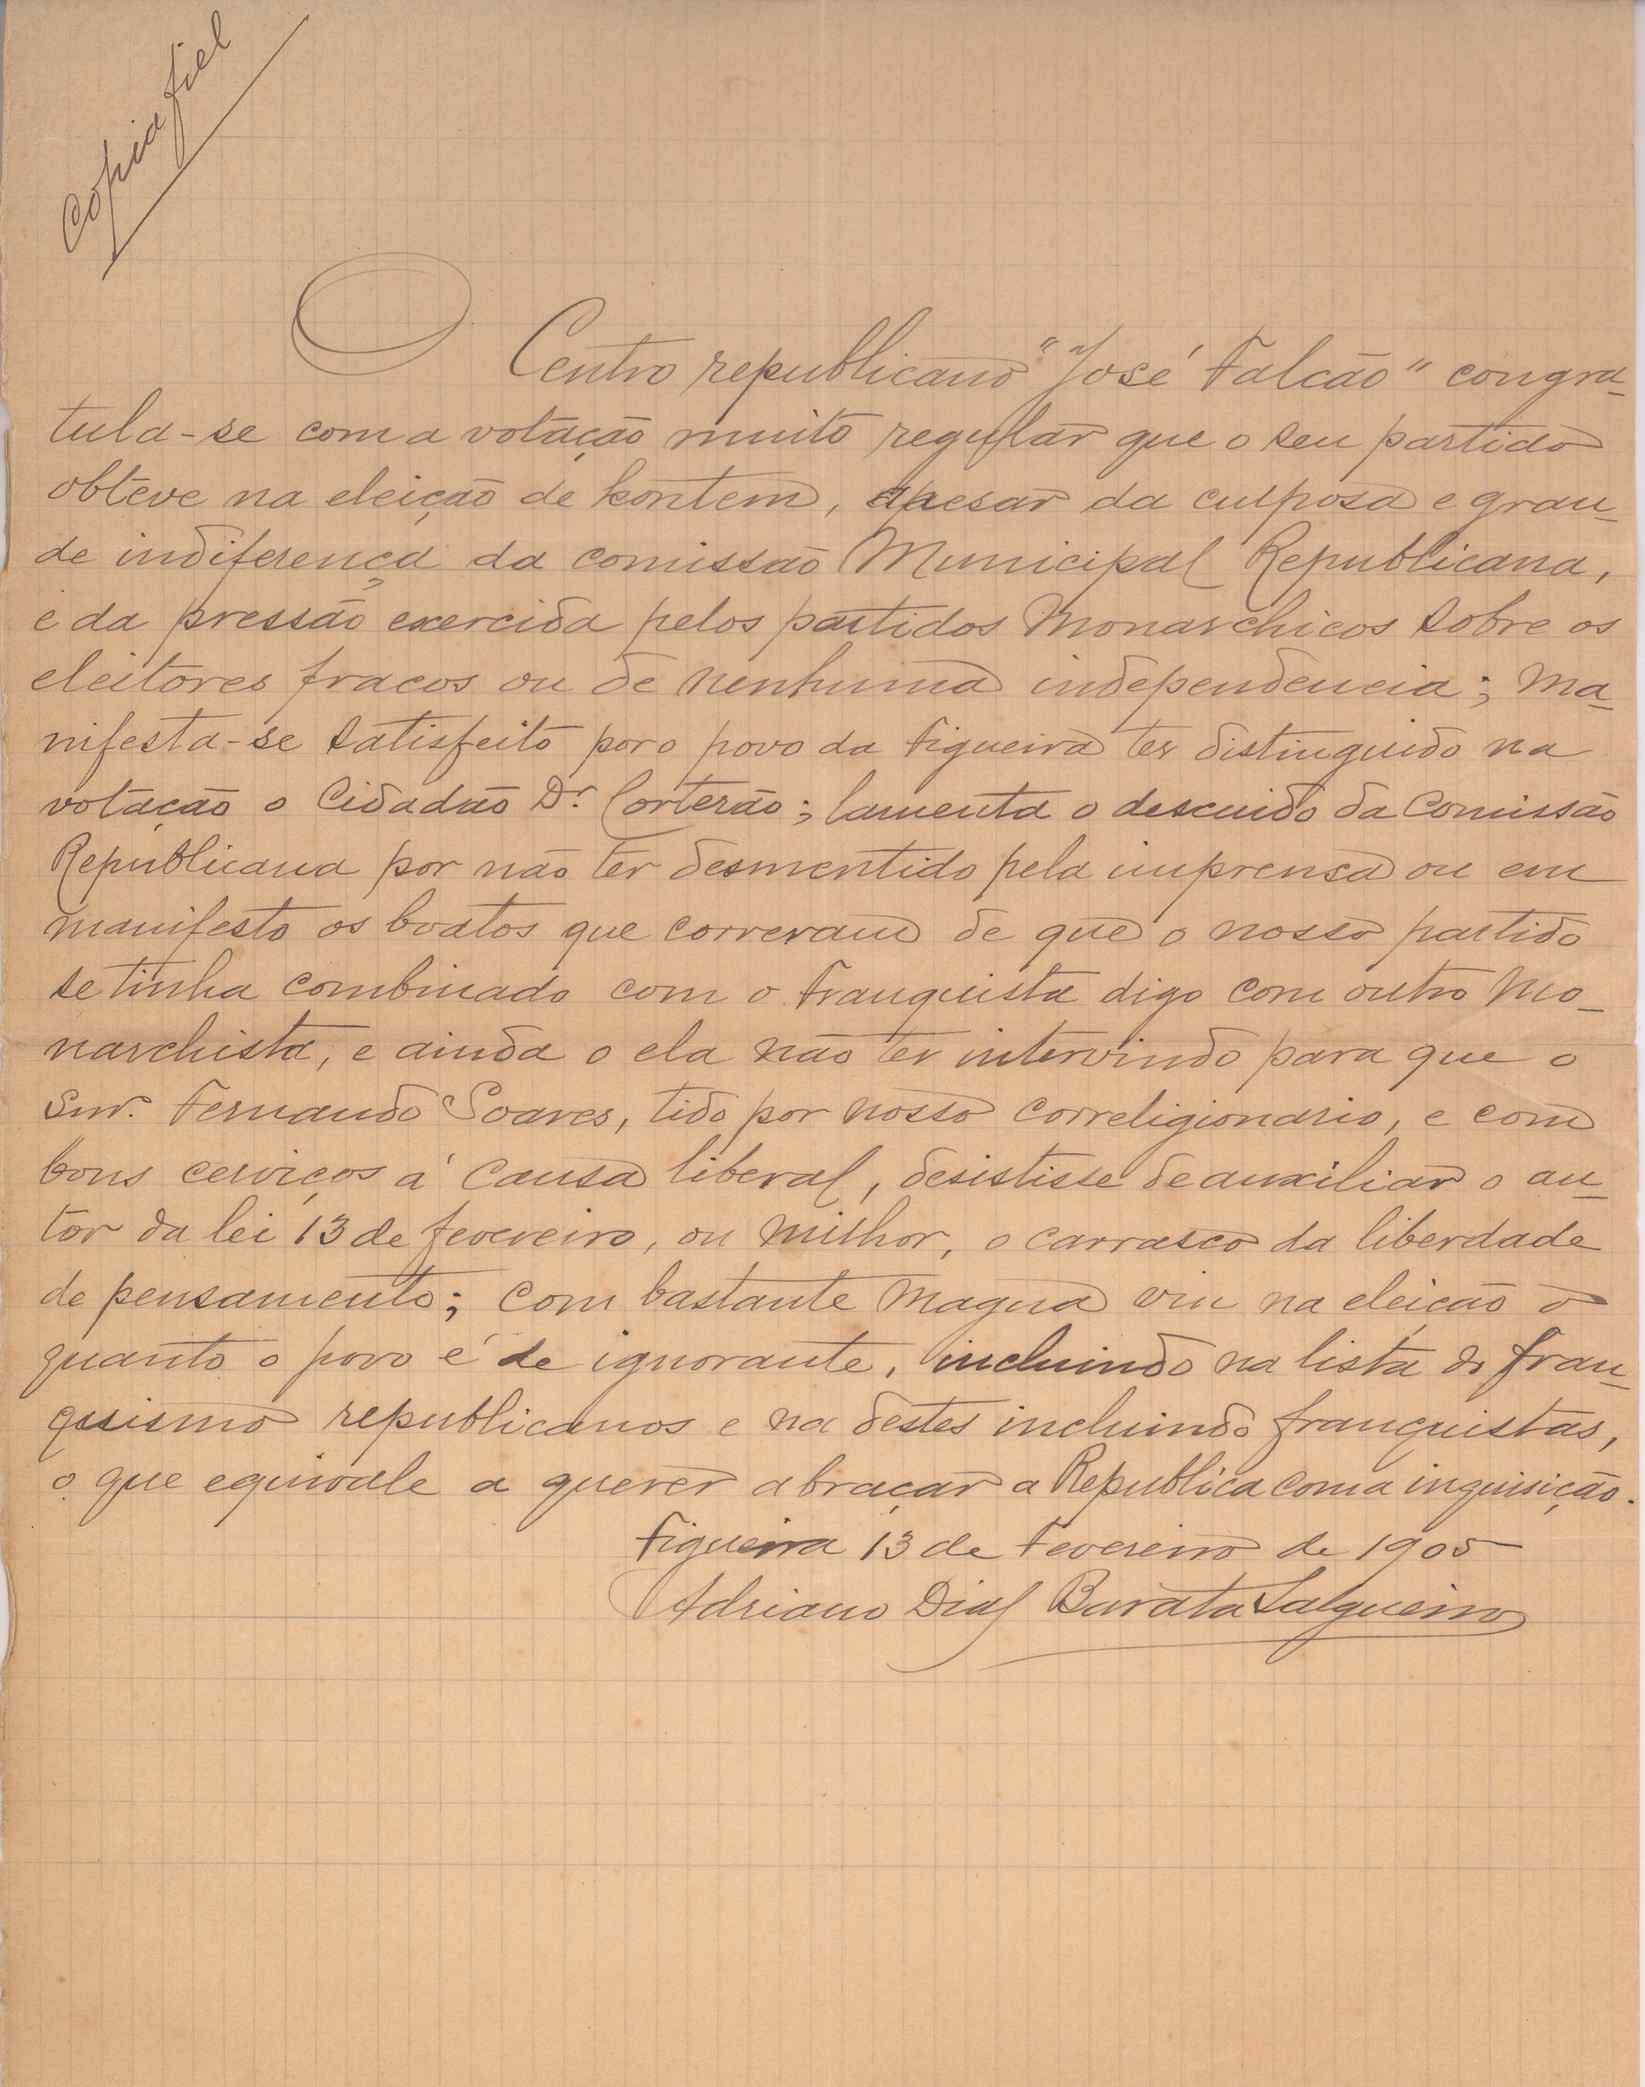 Copia fiel
O Centro republicano "José Falcão" congra-
tula-se com a votação muito regular que o seu partido
obteve na eleição de hontem, apesar da culposa e gran-
de indiferença da comissão Municipal Republicana,
e da pressão exercida pelos partidos Monarchicos sobre os
eleitores fracos ou de nenhuma independencia; Ma-
nifesta-se satisfeito por o povo da Figueira ter distinguido na
votação o Cidadão Dr. Corterão; lamenta o descuido da Comissão
Republicana por não ter desmentido pela imprensa ou em
manifesto os boatos que correram de que o nosso partido
se tinha combinado com o Franquista digo com outro Mo-
narchista, e ainda o ela não ter intervindo para que o
Snr. Fernando Soares, tido por nosso correligionario, e com
bons cerviços á causa liberal, desistisse de auxiliar o au-
tor da lei 13 de fevereiro, ou milhor, o carrasco da liberdade
de pensamento; com bastante magua viu na eleição o
quanto o povo é de ignorante, incluindo na lista do fran-
quismo republicanos e na destes incluindo franquistas,
o que equivale a querer abraçar a Republica com a inquisição.
Figueira 13 de Fevereiro de 1905
Adriano Dias Barata Salgueiro